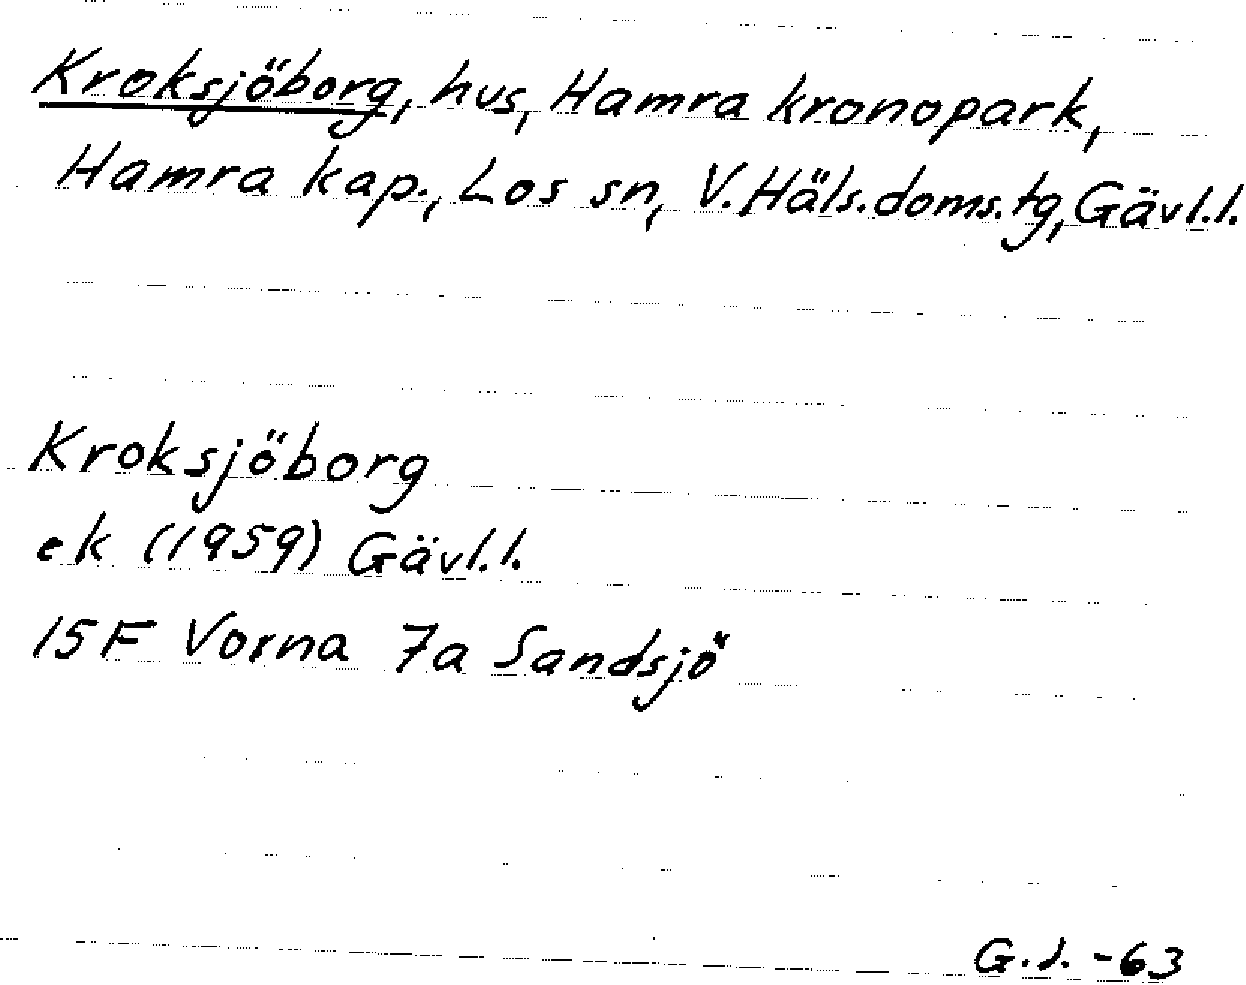 Kroksjöborg, hus, Hamra kronopark,
Hamra kap., Los sn, V. Häls. doms. tg, Gävl.l.
Kroksjöborg
ek (1959) Gävl.l.
15F Vorna 7a Sandsjö
G.J. -63